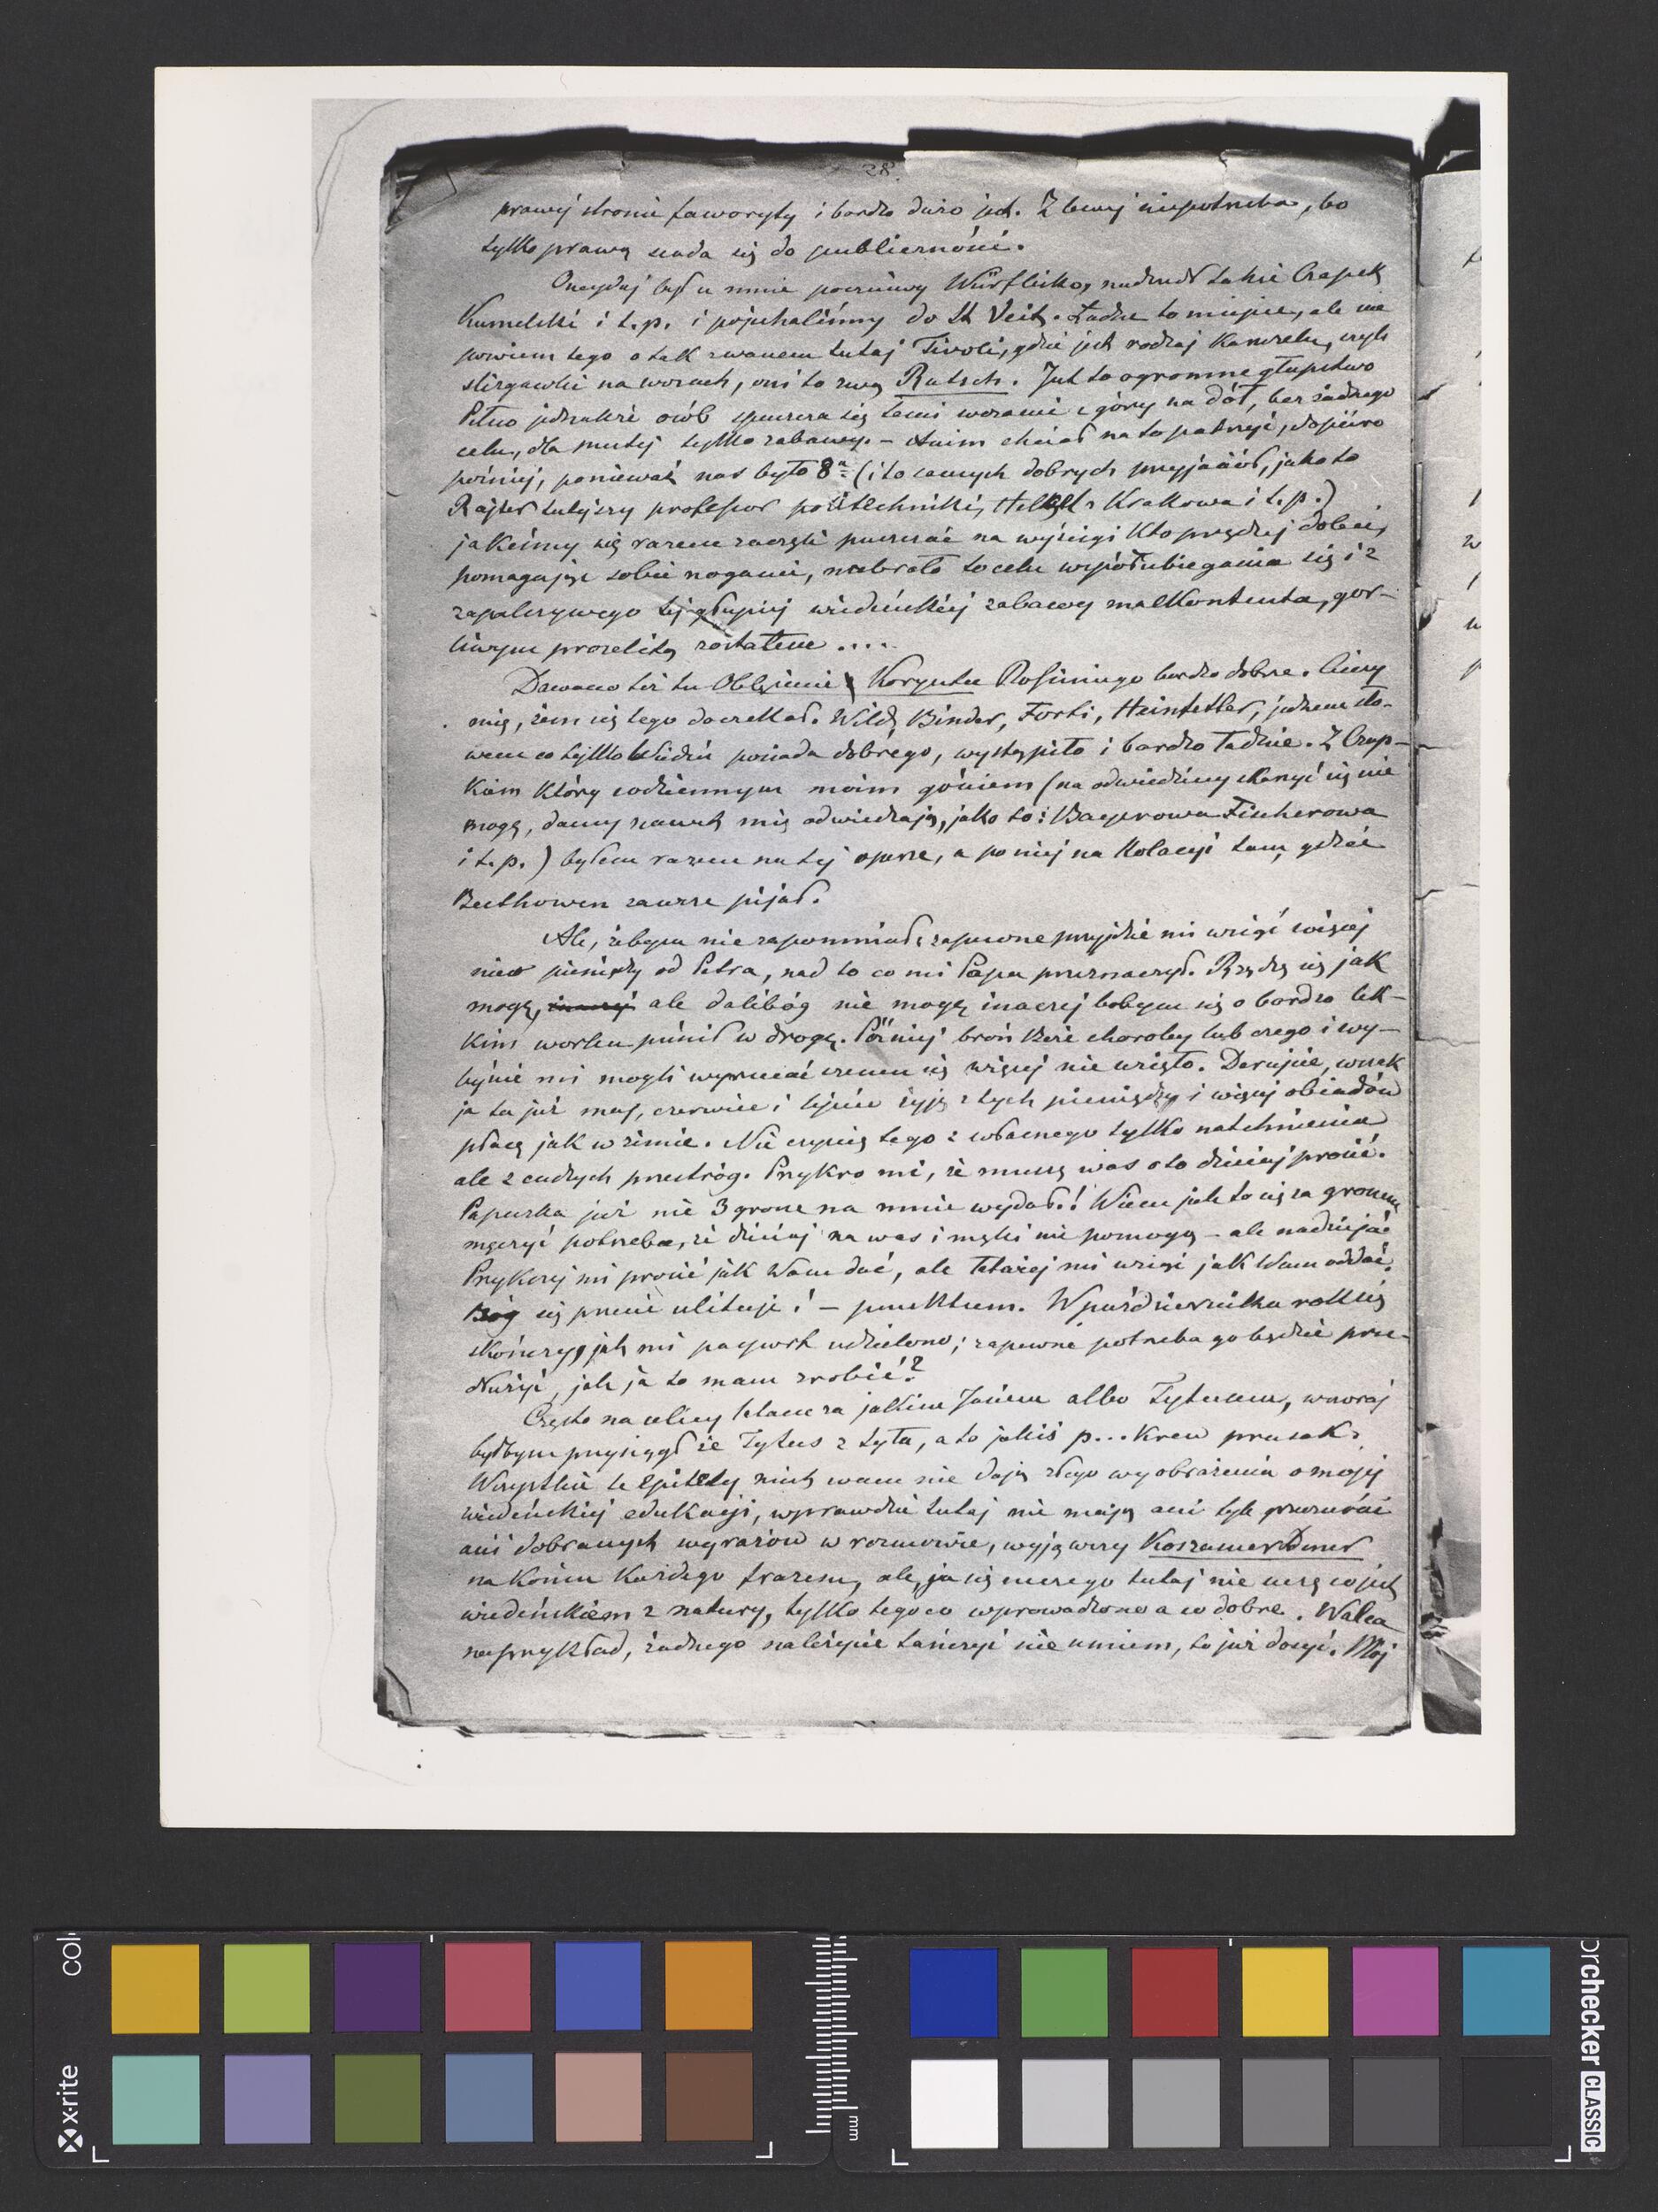 28.
prawéj stronie faworyty i bardzo duże jest. Z lewej niepotrzeba, bo
tylko prawą siada się do publiczności.
Onegdaj był u mnie poczciwy Würflisko, nadszedł także Czapek
Kumelski i t.p. i pojechaliśmy do St Veit. Ładne to miejsce, ale nie
powiem tego o tak zwanem tutaj Tivoli, gdzie jest rodzaj Karuzelu, czyli
slizgawki na wozach, oni to zwą Rutsch. Jest to ogromne głupstwo
Pełno jednakże osób spuszcza się temi wozami z góry na dół, bez żadnego
celu, dla pustej tylko zabawy. – Anim chciał na to patrzyć, dopiéro
później, ponieważ nas było 8u (i to samych dobrych przyjaciół, jako to
Rajter tutejszy professor politechniki, Helcel z Krakowa i t.p.)
jakeśmy się razem zaczęli puszczać na wyścigi kto prędzej doleci,
pomagając sobie nogami, nabrało to celu współubiegania się i z
zapalczywego téj głupiej wiedeńskiéj zabawy malkontenta, gor-
liwym prozelitą zostałem ....
Dawano téż tu Oblężenie Koryntu Rossiniego bardzo dobrze. Cieszy
mię, żem się tego doczekał. Wild, Binder, Forti, Heinfetter, jednem sło-
wem co tylko Wiedeń posiada dobrego, wystąpiło i bardzo ładnie. Z Czap-
kiem który codziennym moim gościem (na odwiedziny skarżyć się nie
mogę, damy nawet mię odwiedzają, jako to: Bayerowa Ficherowa
i t.p.) byłem razem na téj operze, a po niéj na kolacyi tam, gdzie
Beethowen zawsze pijał.
Ale, żebym nie zapomniał; zapewne przyjdzie mi wziąć więcej
nieco pieniędzy od Petra, nad to co mi Papa przeznaczył. Rządzę się jak
mogę, ale dalibóg nie mogę inaczej bobym się o bardzo lek-
kim worku puścił w drogę. Później broń Boże choroby lub czego i wy-
byście mi mogli wyrzucać czemu się więcej nie wzięło. Darujcie, wszak
ja tu już maj, czerwiec i lipiec żyję z tych pieniędzy i więcej obiadów
płacę jak w zimie. Nie czynię tego z własnego tylko natchnienia
ale z cudzych przestróg. Przykro mi, że muszę was o to dzisiaj prosić.
Papuzka już nie 3 grosze na mnie wydał! Wiem jak to się za groszem
męczyć potrzeba, że dzisiaj na was i męki nie pomogą – ale nadziejać
Przykrzej mi prosić jak Wam dać, ale łatwiej mi wziąć jak Wam oddać.
Bóg się przecie ulituje! – punktum. W październiku rok się
skończy, jak mi paszport udzielono; zapewne potrzeba go będzie prze-
dłużyć, jak ja to mam zrobić?
Często na ulicy latam za jakim Jasiem albo Tytusem, wczoraj
byłbym przysiągł że Tytus z tyłu, a to jakiś p...krew prusak.
Wszystkie te epitety niech wam nie dają złego wyobrażenia o mojej
wiedeńskiej edukacyi, wprawdzie tutaj nie mają ani tyle grzeczności
ani dobranych wyrazów w rozmowie, wyjąwszy KoszamerDiener
na końcu każdego frazesu, ale ja się niczego tutaj nie uczę co jest
wiedeńskiem z natury, tylko tego co wprowadzone a co dobre. Walca
naprzykład, żadnego należycie tańczyć nie umiem, to już dosyć. Mój